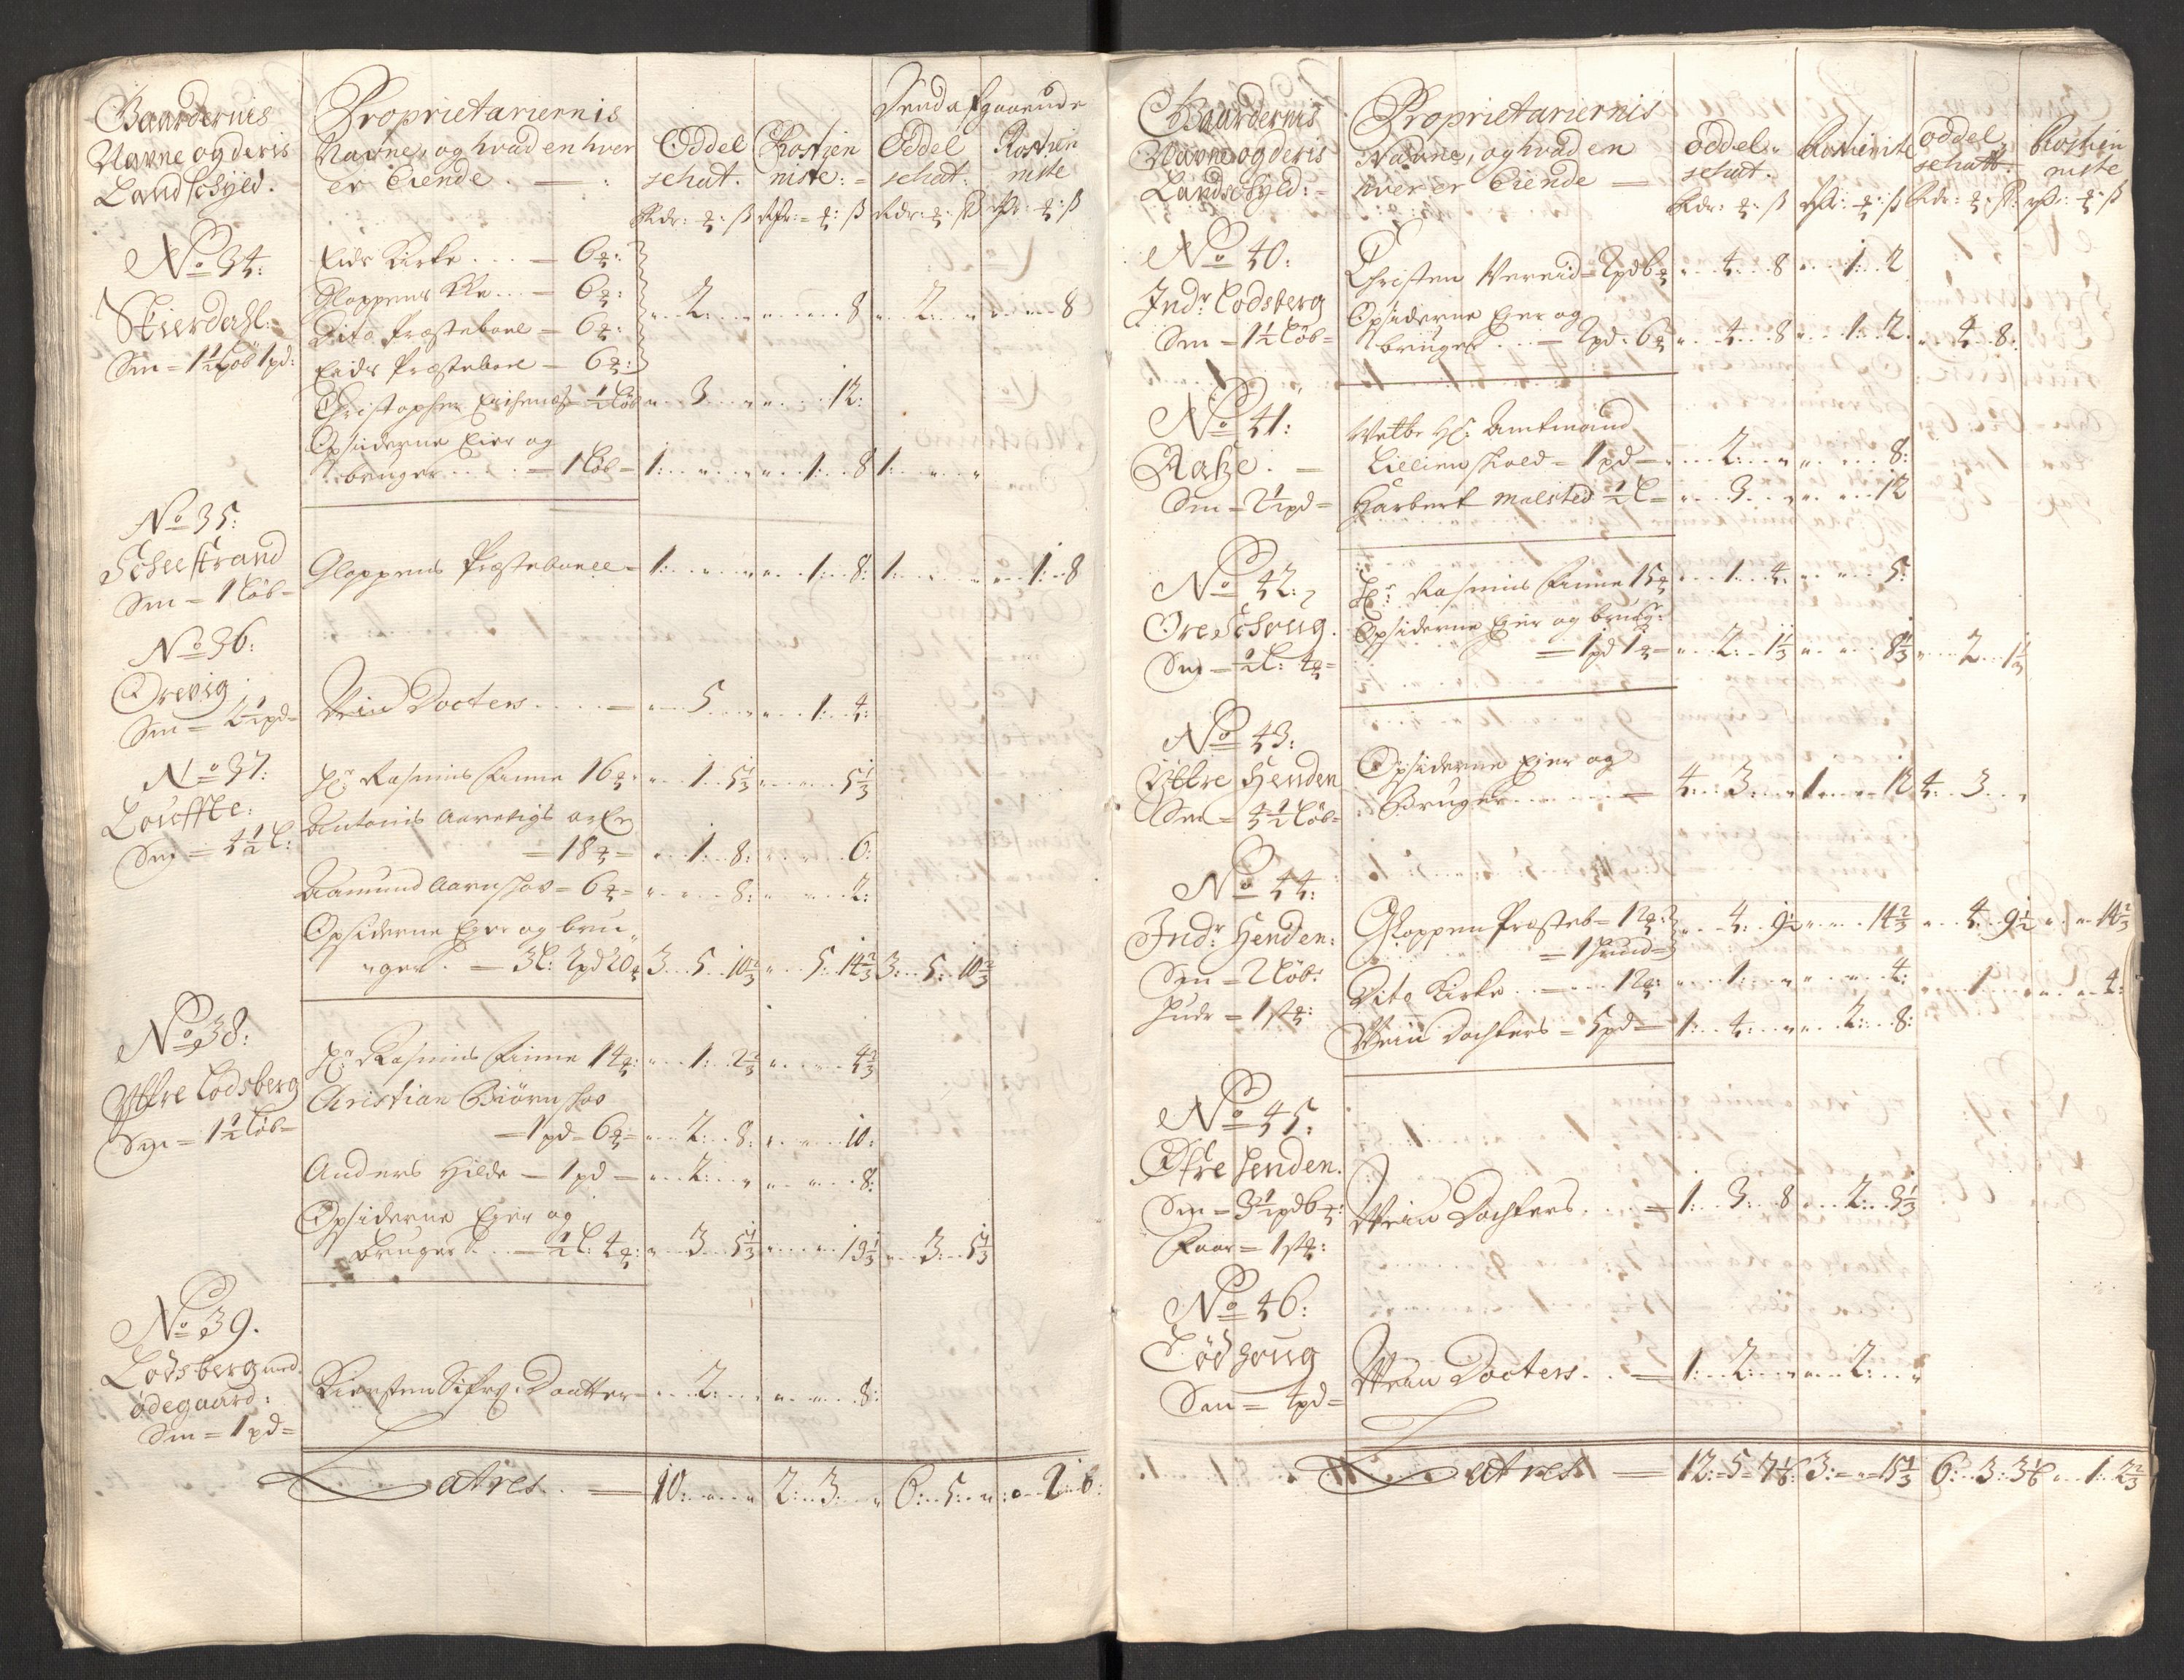 Gaardernis
Nafne og deris
Landschyld.
Proprietariernis
Nafne, og hvad en hver
er Eiende.
Oddel
schat.
Rostien
niste:
Dend afgaaende
Oddel
schat:
Rostien
niste
Rdr: ß
No 34:
Skierdahl:
Sm = 1½ løb 1 pd:
Eids Kirke . . . 6
Gloppens Kr . . 6
Dito Præsteboel - 6
Eids Præsteboel - 6
2 8 2 8
Christopher ½ løb 3 12:
Opsiderne Eier og
bruger . . . = 1 løb = 1: 1: 8 1:
No 35:
Scheestrand
Sm = 1 løb =
Gloppens Præsteboel = 1: 1: 8: 1: 1: 8
No 36:
Orevig
Sm = 2½ pd =
Wein Docters . . . 5 1: 4:
No 37:
Louffte:
Sm = 4½ l:
Hr: Rasmus Finne 16 1: 5⅓ 5⅓
Antonis Aarevigs
= 18 = 1: 8: 6:
Aamund = 6 = 8: 2:
Opsiderne Eier og bru
ger . = 3 l: 2 pd 20 3 5 10⅔ 5: 14⅔ 3: 5: 10⅔
No 38:
Ytre Lodsberg
Sm = 1½ løb =
Hr: Rasmus Finne 14 1: 2⅔ 4⅔
Christian Biørnshov
= 1 pd = 6 = 2: 8: 10:
Anders Hilde = 1 pd = 2: 8:
Opsiderne Eier og
bruger . . = ½ l: 4 3 5⅓ 13⅓ 3: 5⅓
No 39.
Lodsberg med
ødegaard:
Sm = 1 pd =
Kiersten Datter 2: 8:
Latres . . 10: 2: 3: 6: 5: 2: 6:
Gaardernis
Nafne og deris
Landschyld:
Proprietariernis
Nafne, og hvad en
hver er Eiende
oddel
schat.
Rostieniste
oddel
schatt.
Rostien
niste
Rdr: ß
No 40:
Indr Lodsberg
Sm = 1½ løb =
Christen Vereid = 2 pd 6 4: 8 1: 2
Opsiderne Eier og
bruger . . = 2 pd: 6 4: 8 1: 2. 4: 8:
No 41:
Sm = 2½ pd =
Welb: Hr: Amtmand
Lillienschold = 1 pd = 2: 8:
Harbert Malsted ½ l = 3. 12
No 42:
Ore Schoug.
Sm = ½ l: 4 =
Hr: Rasmus Finne 15 1: 4: 5:
Opsiderne Eier og brug:
= 1 pd 1 = 2: 1⅓ 8⅓ 2 1⅓
No 43:
Ytre Henden
Sm = 4½ løb =
Opsiderne Eier og
Bruger . . . 4: 3: 1 12 4: 3
No 44:
Indr: Henden:
Sm = 2 løb:
Hude = 1 st:
Gloppen Præsteb = 12
= 1 hud = 4: 9½ 14⅔ 4: 9½ 14⅔
Dito Kirke . . 12: 1: 4: 1 4:
Wein Dochters = 5 pd = 1: 4: 2: 8:
No 45:
Øfre Henden.
Sm = 3½ pd 6:
Faar = 1 st:
Wein Dochters . . . = 1: 3: 8 2: 3⅓
No 46:
Sm = 4 pd =
Wein Docters . . = 1: 2: 2:
Latres = 12: 5 7⅙: 3: 15⅓ 6: 3: 3⅙ 1: 2⅔